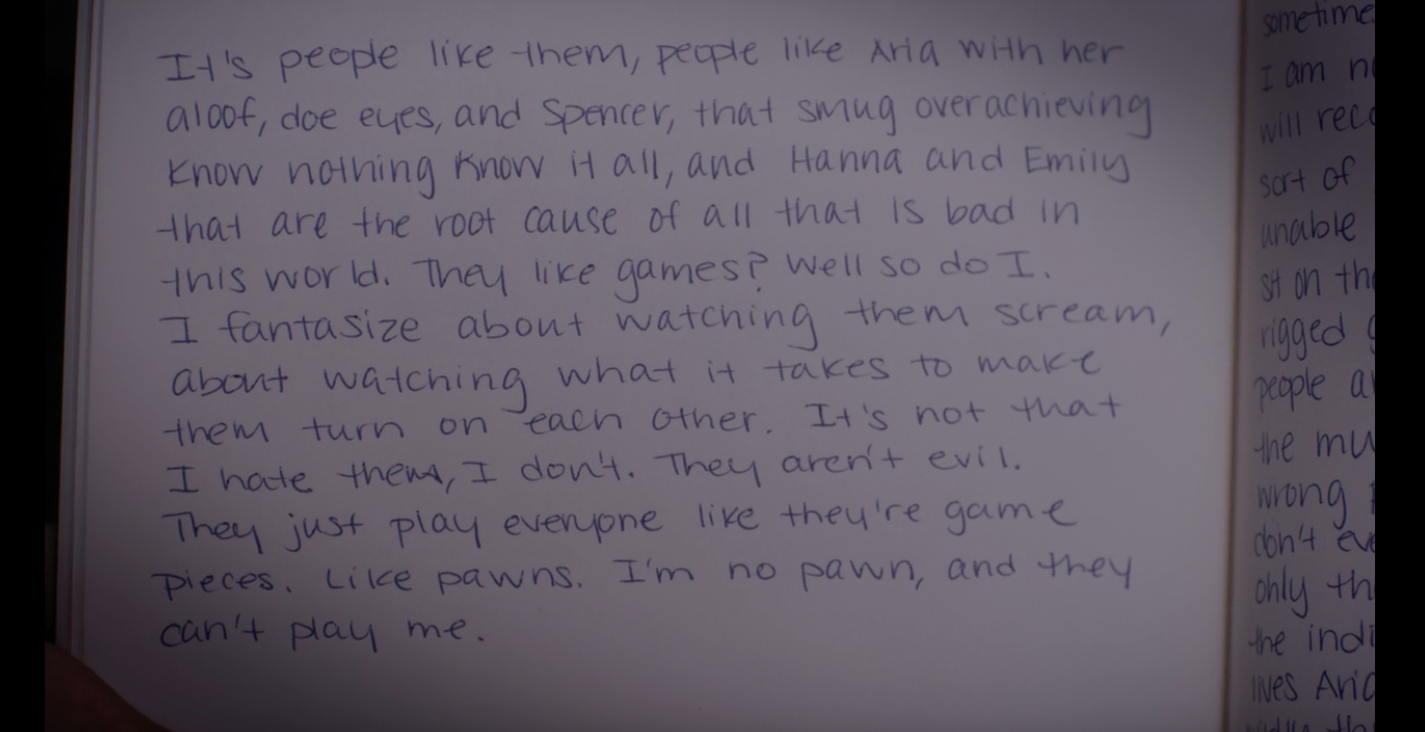 It's people like them, people like Aria with her
aloof, doe eyes, and Spencer, that smug overachieving
know nothing know it all, and Hanna and Emily
that are the root cause of all that is bad in
this world. They like games? Well so do I.
I fantasize about watching them scream,
about watching what it takes to make
them turn on each other. It's not that
I hate them, I don't. They aren't evil.
They just play everyone like they're game
pieces. Like pawns. I'm no pawn, and they
can't play me.
I am
will
sort of
unable
sit on
rigged
people
the
wrong
don't
only
the